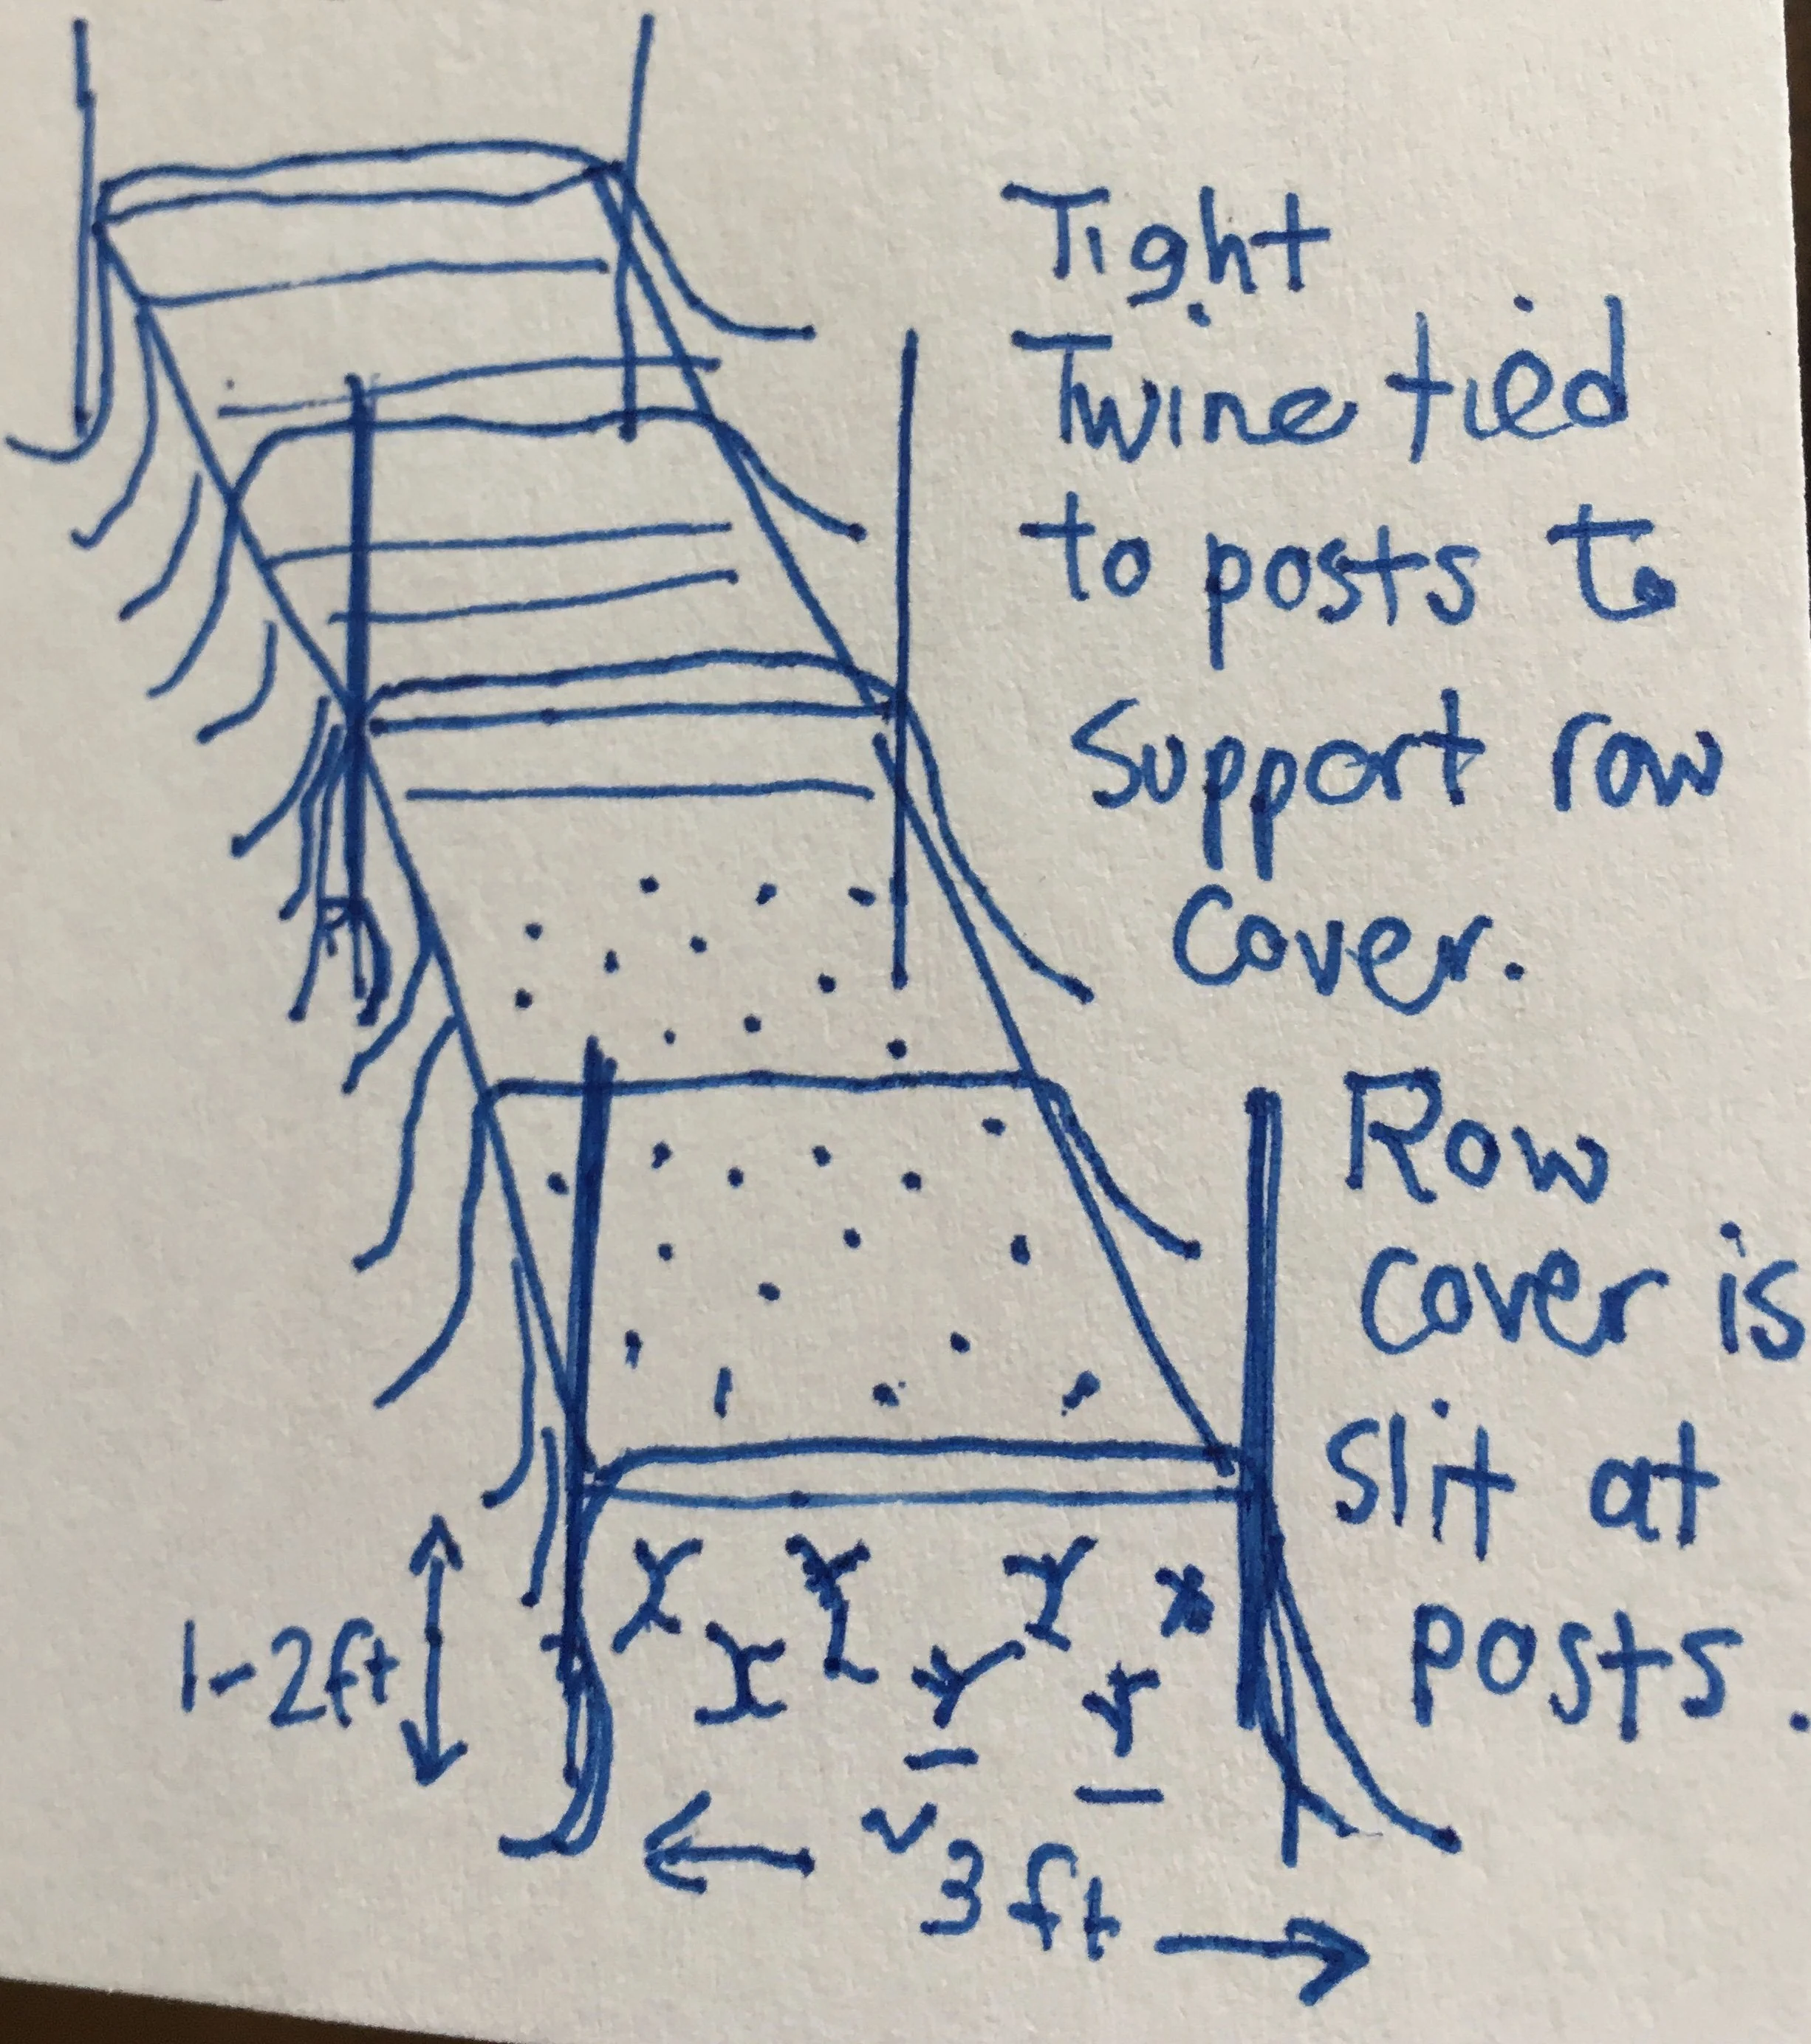 Tight
Twine tied
to posts to
Support row
Cover.
Row
cover is
slit at
posts.
1-2ft
~3ft